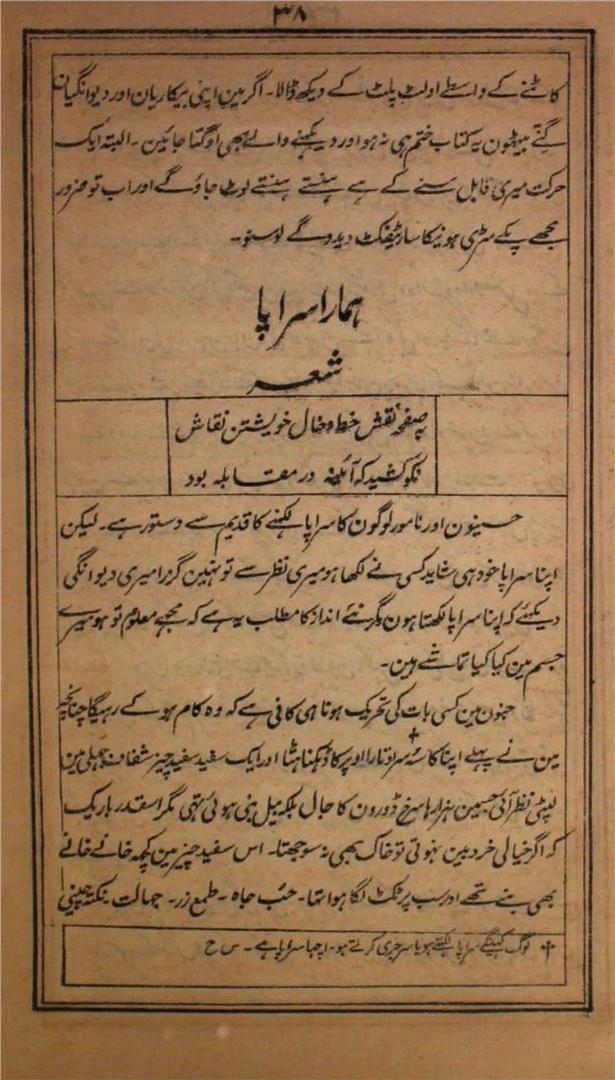 ۳۸
کاٹنے کے واسطے اولٹ پلٹ کے دیکھ ڈالا۔ اگر مین اپنی بیکاریان اور دیوانگیان
گننے بیٹھون یہ کتاب ختم ہی نہ ہو اور دیکھنے والے بھی اوکتا جائین۔ البتہ ایک
حرکت میری قابل سننے کے ہے ہنستے ہنستے لوٹ جاؤگے اور اب تو ضرور
مجھے پکے سڑی ہونیکا سارٹیفکٹ دیدوگے لو سنو۔
ہمارا سراپا
شعر
بہ صفحہ نقش خط و خال خویشتن نقاش
نکو کشید کہ آئنہ در مقابلہ بود
حسینون اور نامور لوگون کا سراپا لکھنے کا قدیم سے دستور ہے۔ لیکن
اپنا سراپا خود ہی شاید کسی نے لکھا ہو میری نظر سے تو نہین گزرا میری دیوانگی
دیکھئے کہ اپنا سراپا لکھتا ہون مگر نئے انداز کا مطلب یہ ہے کہ مجھے معلوم تو ہو میرے
جسم مین کیا کیا تماشے ہین۔
جنون مین کسی بات کی تحریک ہونا ہی کافی ہے کہ وہ کام ہو کے رہیگا چنانچہ
مین نے پہلے اپنا کاسۂ سر اوتارا † اوپر کا ڈھکنا ہٹا اور ایک سفید سفید چیز شفاف جھلی مین
لپٹی نظر آئی جسمین ہزارہا سرخ ڈورون کا جال بلکہ بیل بنی ہوئی تھی مگر اسقدر باریک
کہ اگر خیالی خردبین نہوتی تو خاک بھی نہ سوجھتا۔ اس سفید چیز مین کچھ خانے خانے
بھی بنے تھے اور سب پر ٹکٹ لگا ہوا تھا۔ حب جاہ۔ طمع زر۔ جہالت نکتہ چینی
† لوگ کہینگے سراپا لکھتے ہو یا سرجری کرتے ہو۔ اچھا سراپا ہے۔ س ح